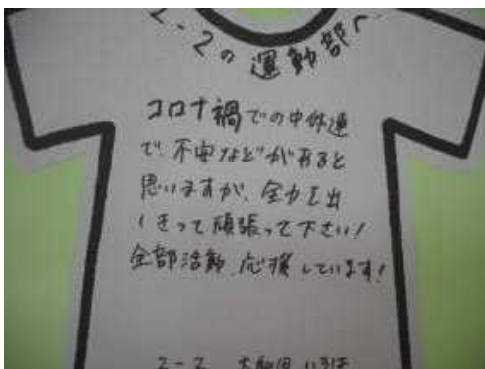 2-2の運動部へ
コロナ禍での中体連
で、不安などがあると
思いますが、全力を出
しきって頑張って下さい!
全部活動、応援しています!
2-2